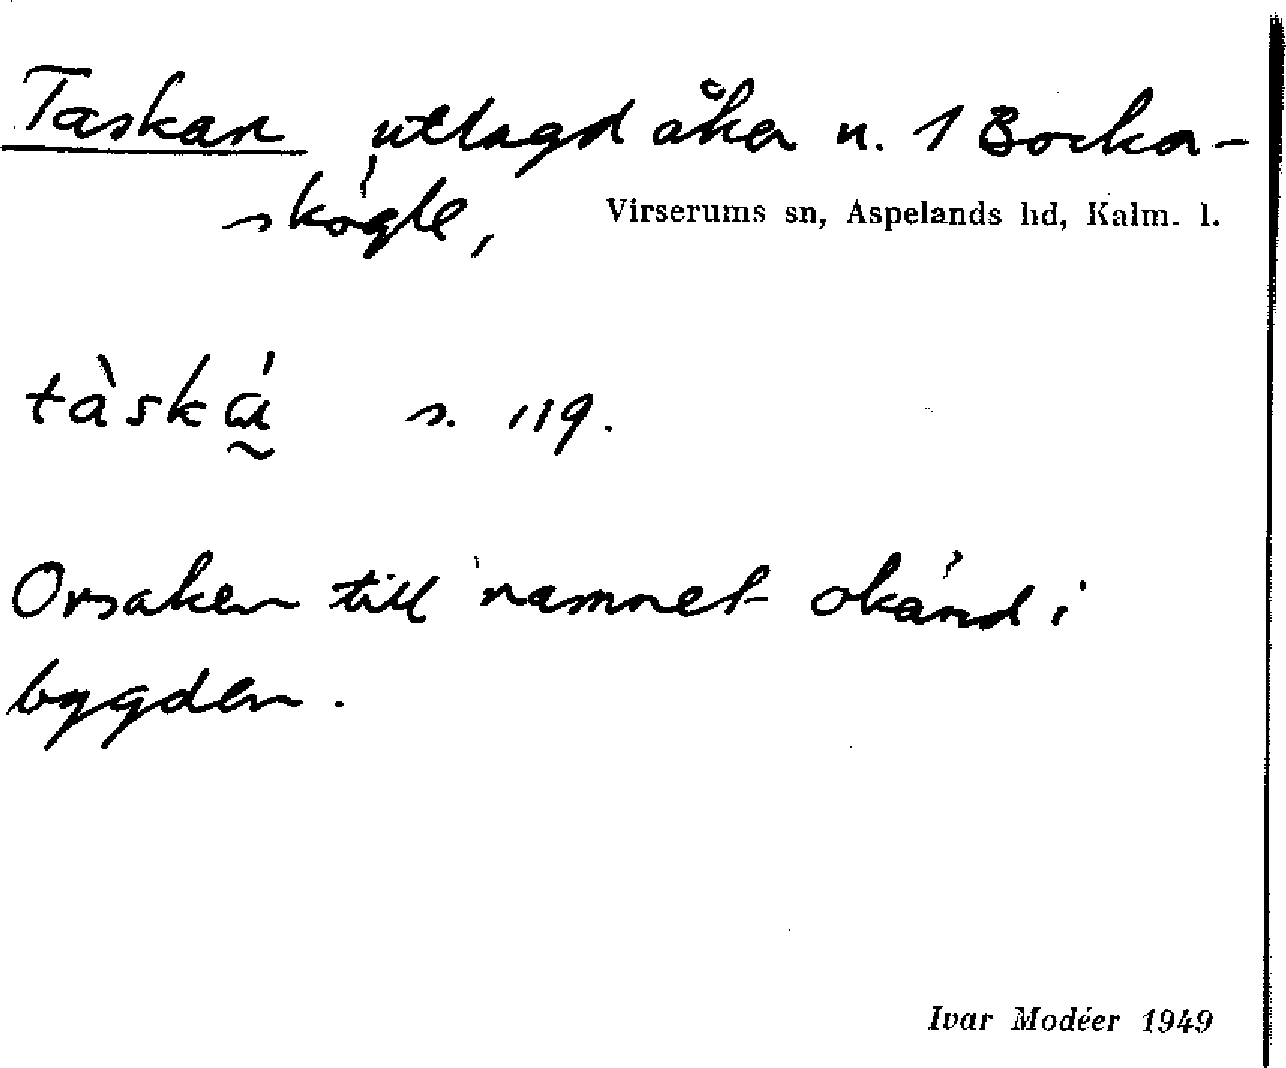 Taskan utlagd åker n. 1 Bocka-
skögle,
Virserums sn, Aspelands hd, Kalm. l.
s. 119.
Orsaken till namnet okänd i
bygden.
Ivar Modéer 1949